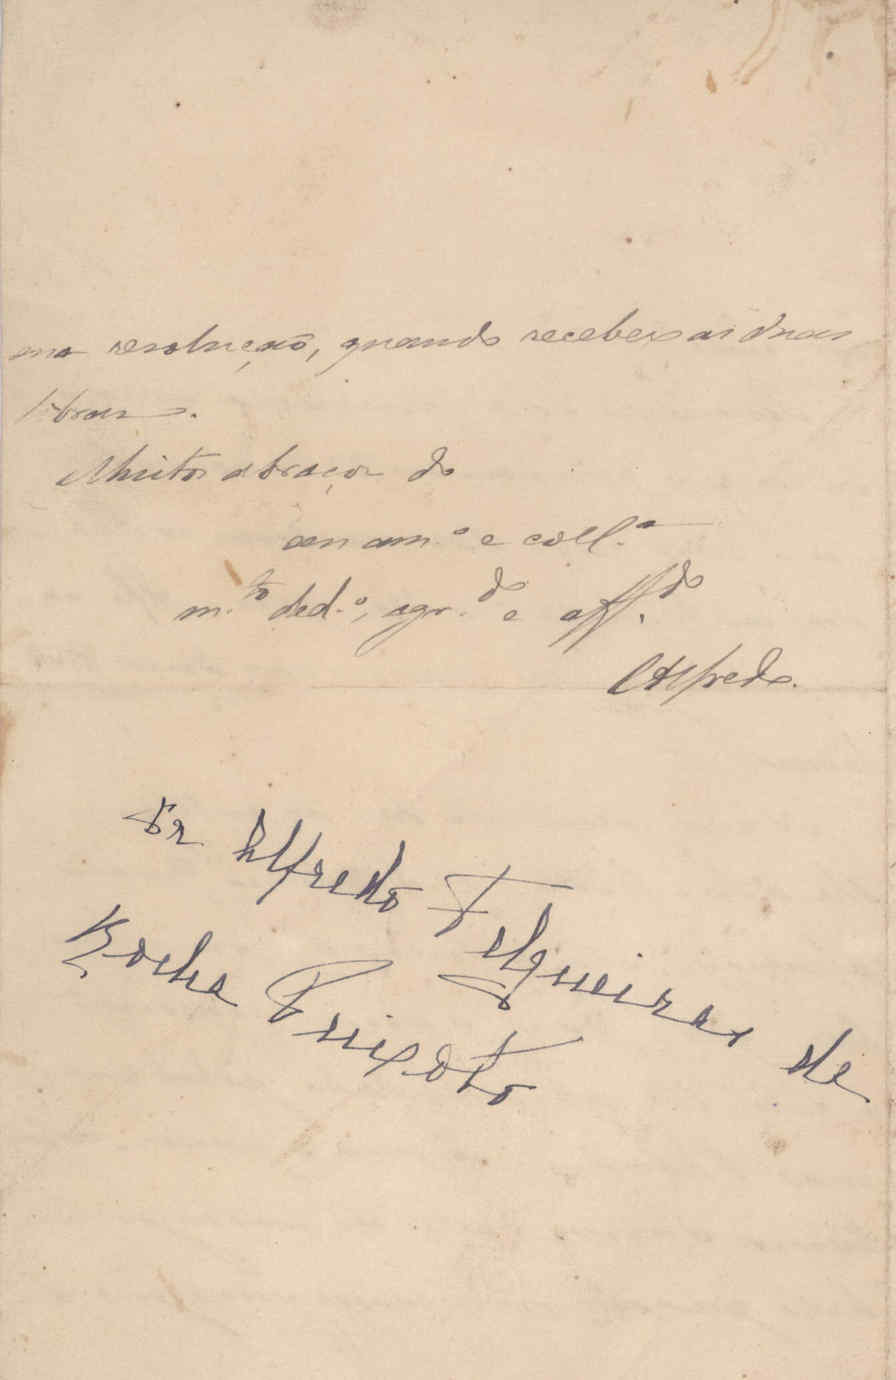 ma resolução, quando receber as duas
libras.
Muitos abraços do
seu am.º e coll.ª
m.to ded.º, agr.do e aff.do
Alfredo.
Dr Alfredo Felgueiras de
Rocha Peixoto